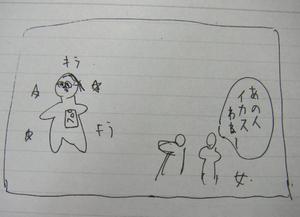 キラ
キラ
あの人
イカス
わねー
女